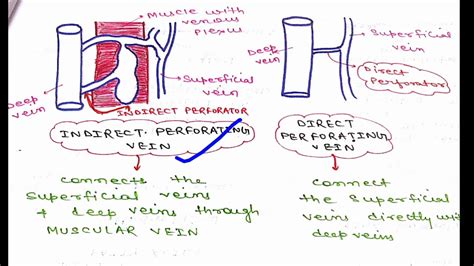 Muscle with
venous
plexus
Superficial
vein
Deep
vein
Direct
Perforator
Superficial
vein
Deep
vein
INDIRECT PERFORATOR
INDIRECT. PERFORATING
VEIN
DIRECT
PERFORATING
VEIN
connects the
superficial veins
+ deep veins through
MUSCULAR VEIN
connect
the superficial
veins directly with
deep veins